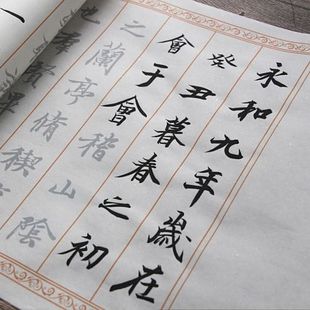 永和九年歲在
癸丑暮春之初
會于會稽山陰
之蘭亭脩禊
也羣賢